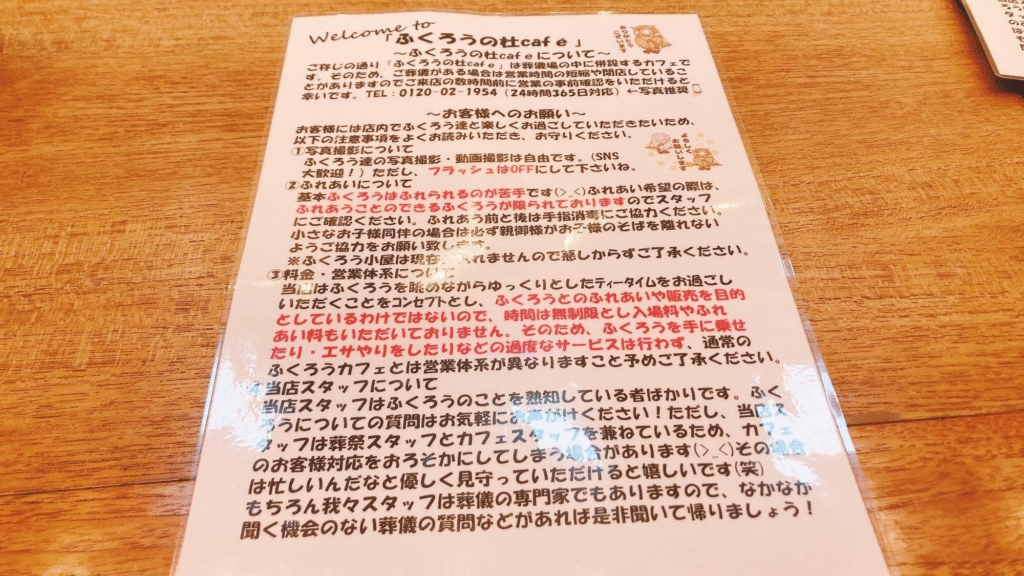 Welcome to
「ふくろうの杜café」
～ふくろうの杜caféについて～
ご存じの通り「ふくろうの杜café」は葬儀場の中に併設するカフェで
す。そのため、ご葬儀がある場合は営業時間の短縮や閉店しているこ
とがありますのでご来店の数時間前に営業の事前確認をいただけると
幸いです。TEL:0120-02-1954（24時間365日対応）←写真推奨
～お客様へのお願い～
お客様には店内でふくろう達と楽しくお過ごしていただきたいため、
以下の注意事項をよくお読みいただき、お守りください。
①写真撮影について
ふくろう達の写真撮影・動画撮影は自由です。(SNS
大歓迎！）ただし、フラッシュはOFFにして下さいね。
よろしく
お願いします
②ふれあいについて
基本ふくろうはふれられるのが苦手です(>_<)ふれあい希望の際は、
ふれあうことのできるふくろうが限られておりますのでスタッフ
にご確認ください。ふれあう前と後は手指消毒にご協力ください。
小さなお子様同伴の場合は必ず親御様がお子様のそばを離れない
ようご協力をお願い致します。
※ふくろう小屋は現在、れませんので悪しからずご了承ください。
③料金・営業体系について
当店はふくろうを眺めながらゆっくりとしたティータイムをお過ごし
いただくことをコンセプトとし、ふくろうとのふれあいや販売を目的
としているわけではないので、時間は無制限とし入場料やふれ
あい料もいただいておりません。そのため、ふくろうを手に乗せ
たり・エサやりをしたりなどの過度なサービスは行わず、通常の
ふくろうカフェとは営業体系が異なりますこと予めご了承ください。
当店スタッフについて
当店スタッフはふくろうのことを熟知している者ばかりです。ふく
ろうについての質問はお気軽にお声がけください！ただし、当店ス
タッフは葬祭スタッフとカフェスタッフを兼ねているため、カフェ
のお客様対応をおろそかにしてしまう場合があります(>_<)その場合
は忙しいんだなと優しく見守っていただけると嬉しいです(笑)
もちろん我々スタッフは葬儀の専門家でもありますので、なかなか
聞く機会のない葬儀の質問などがあれば是非聞いて帰りましょう！